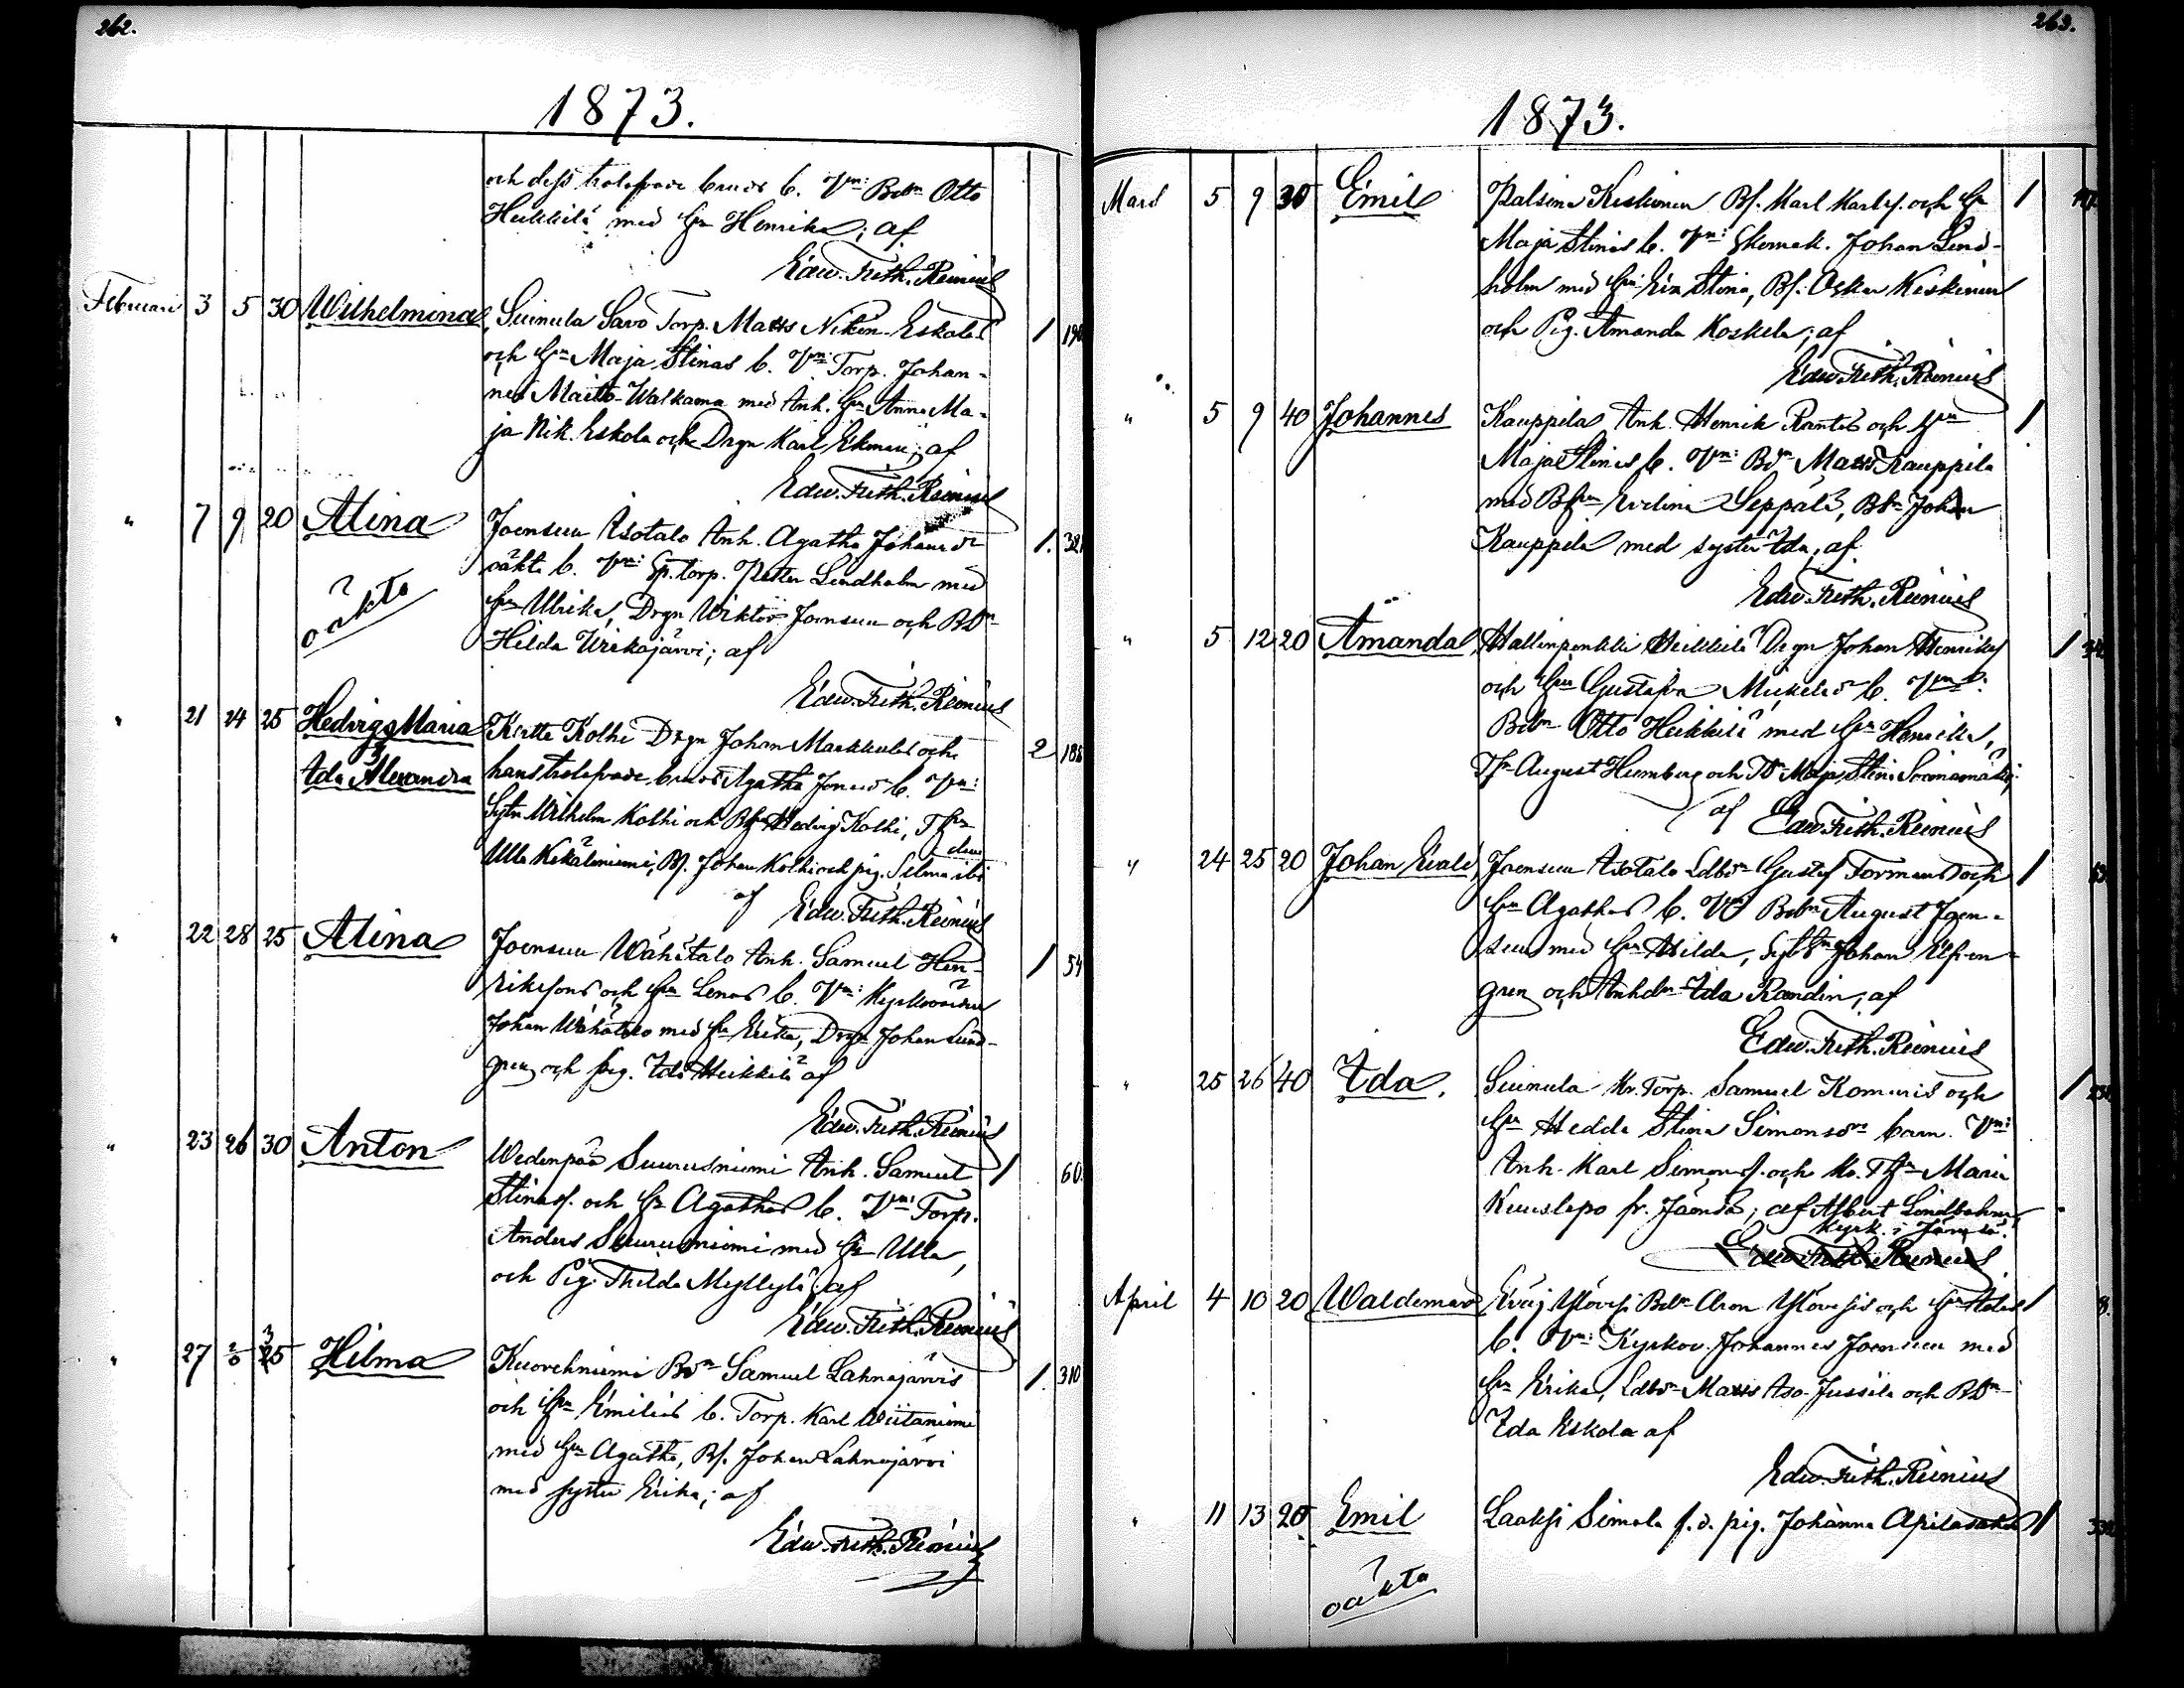 262.
1873.
och dess trolofvade bruds b. Vn: Bdn Otto
Heikkilä med hu Henrika; af
Edw. Frith. Reinius
Februari 3 5 30 Wilhelmina Suinula Savo Torp. Matts Niken-Eskolas 1 190
och hu Maja Stinas b. Vn: Torp. Johan-
nes Maitto-Walkama med Inh. hu Anna Ma-
ja Nik. Eskola och Drgn Karl Ekman; af
Edw. Frith. Reinius
" 7 9 20 Alina Joensuu Isotalo Inh. Agatha Johansdr 1. 321
oäkta b. Vn: Sp. torp. Petter Lindholm med
oäkta
hu Ulrika, Drgn Wiktor Joensuu och BDr
Hilda Wirkajärvi; af
Edw. Frith. Reinius
" 21 24 25 Hedvig Maria Kertte Kolhi Drgn Johan Markkulas och 2 188
Ida Alexandra hans trolofvade bruds Agatha Jonasd b. Vn:
Sytn Wilhelm Kolhi och Bhu Hedvig Kolhi, Thu
Ulla Kekäleniemi, Bs. Johan Kolhi och pig. Selma ibidem
af Edw. Frith. Reinius
" 22 28 25 Alina Joensuu Wähätalo Inh. Samuel Hen- 1 54
rikssons och hu Lenas b. Vn: Kyrkovärden
Johan Wähätalo med hu Erika, Drgn Johan Lund-
gren och pig. Ida Heikkilä af
Edw. Frith. Reinius
" 23 26 30 Anton Wedenpää Suurusniemi Inh. Samuel 1 60.
Stinas s. och hu Agathas b. Vn: Torp.
Anders Suurusniemi med hu Ulla,
och Pig. Thilda Myllylä; af
Edw. Frith. Reinius
" 27 2/3 25 Hilma Kuorehniemi Bdn Samuel Lahnajärvis 1. 310
och hu Emilias b. Torp. Karl Wiitaniemi
med hu Agatha, Bs. Johan Lahnajärvi
med syster Erika; af
Edw. Frith. Reinius
263.
1873.
Mars 5 9 30 Emil Palsina Keskinen Bs. Karl Karlss. och hu 1
Maja Stinas b. Vn: Skomak. Johan Lind-
holm med hu Eva Stina, Bs. Oskar Keskinen
och Pig. Amanda Koskela; af
Edw. Frith. Reinius
" 5 9 40 Johannes Kauppila Inh. Henrik Rantas och hu 1
Maja Stinas b. Vn: Bdn Matts Kauppila
med Bhu Evelina Seppälä, Bdn Johan
Kauppila med syster Ida, af
Edw. Frith. Reinius
" 5 12 20 Amanda Hallinpenkki Heikkilä Drgn Johan Henrikss 1
och hu Gustafva Mickelsdr b. Vn:
Bdn Otto Heikkilä med hu Henrika,
Ts August Humberg och TDr Maja Stina Soinamäki;
af Edw. Frith. Reinius
" 24 25 20 Johan Evald Joensuu Isotalo Ldbdn Gustaf Formans och 1
hu Agathas b. Vn: Bdn August Joen-
suu med hu Hilda, Sytn Johan Elfven-
gren och Inhdr Ida Randin; af
Edw. Frith. Reinius
" 25 26 40 Ida. Suinula Kr. Torp. Samuel Komuris och 1
hu Hedda Stina Simonsdr barn. Vn:
Inh. Karl Simonss. och Kr. Thu Maria
Kuuslepo fr. Jämsä; af Albert Lindbohm
kyrk. i Jämsä.
Edw. Frith. Reinius
April 4 10 20 Waldemar Eväj. Ylövesi Bdn Aron Ylövesis och hu 1 8.
b. Vn: Kyrkov. Johannes Joensuu med
hu Erika, Ldbdn Matts Iso-Jussila och BDr
Ida Eskola af
Edw. Frith. Reinius
" 11 13 20 Emil Laaksi Simola f.d. pig. Johanna 1
oäkta